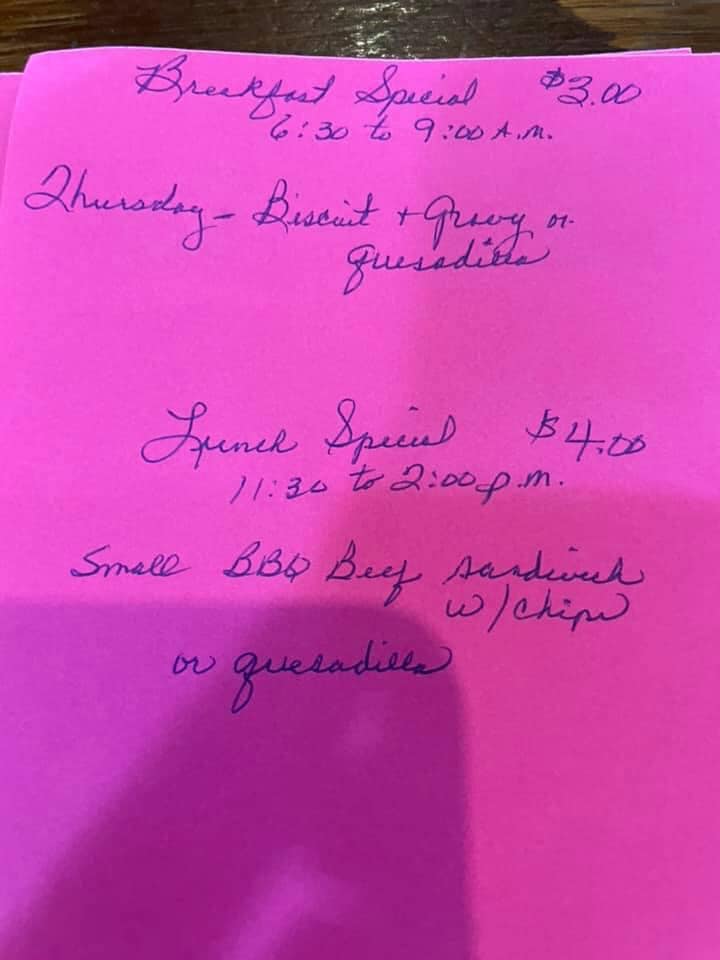 Breakfast Special $3.00
6:30 to 9:00 A.M.
Thursday - Biscuit + Gravy or
quesadilla
Lunch Special $4.00
11:30 to 2:00 p.m.
Small BBQ Beef sandwich
w/chips
or quesadilla